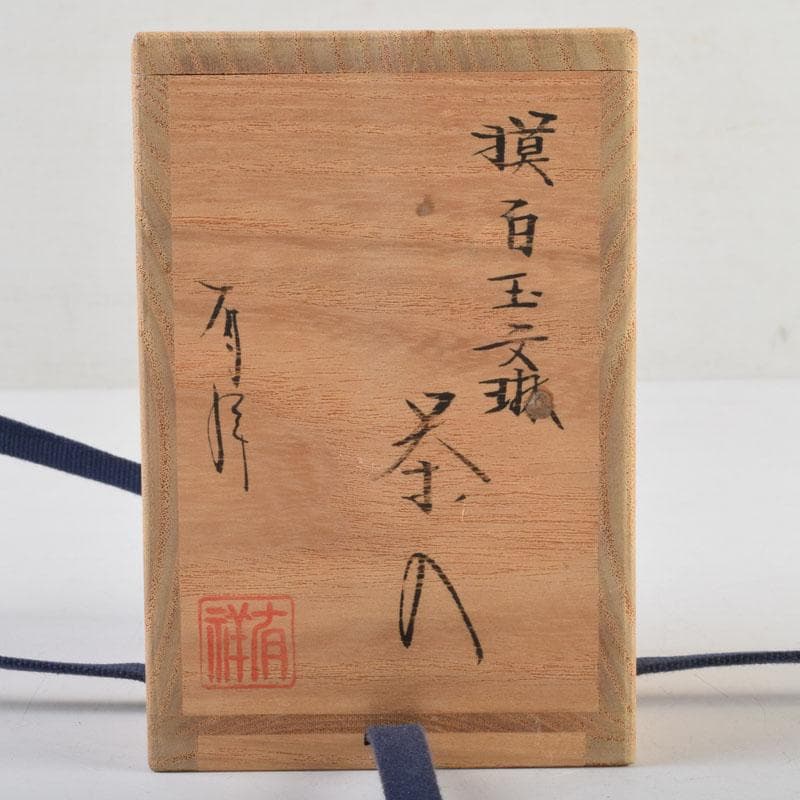 摸白玉文琳
茶入
有祥
有祥